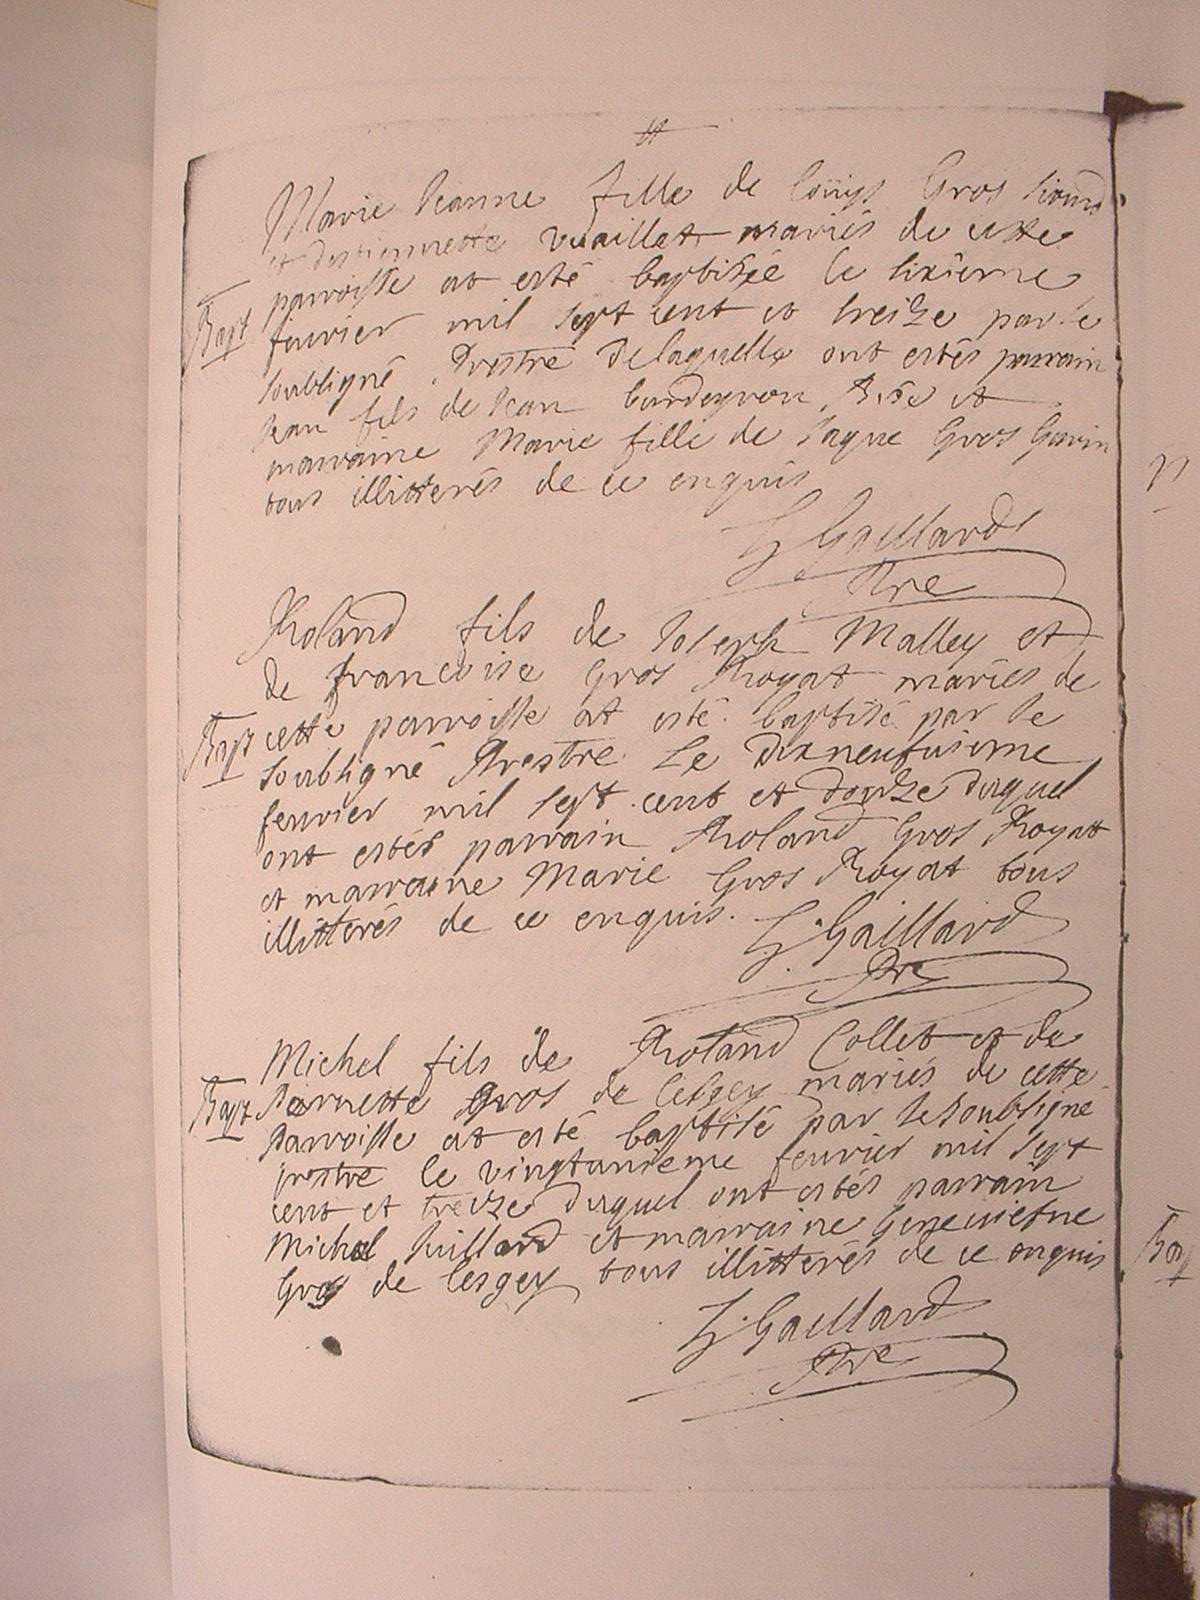 Marie Jeanne fille de Loüys Gros
et destiennette vuaillet mariés de cette
parroisse at esté baptisée le sixieme
Bapt fevrier mil sept cent et treize par le
soubsigné Prestre delaquelle ont estés parrain
Jean fils de Jean et
marraine Marie fille de Gros
tous illitterés de ce enquis
Gaillard
Pre
Roland fils de Joseph Malley et
de francoise Gros Royat mariés de
Bapt cette parroisse at esté baptisé par le
soubsigné Prestre Le dixneufuieme
fevrier mil sept cent et douze duquel
ont estés parrain Roland Gros Royat
et marraine Marie Gros Royat tous
illitterés de ce enquis.
Gaillard
Pre
Michel fils de Roland Collet et de
Bapt Pernette Gros de Lesgey mariés de cette
Parroisse at esté baptisé par le soubsigne
prestre le vingtunieme fevrier mil sept
cent et treize duquel ont estés parrain
Michel Juillard et marraine Geneviefue
Gros de Lesgey tous illitterés de ce enquis
Gaillard
Pre
Bap